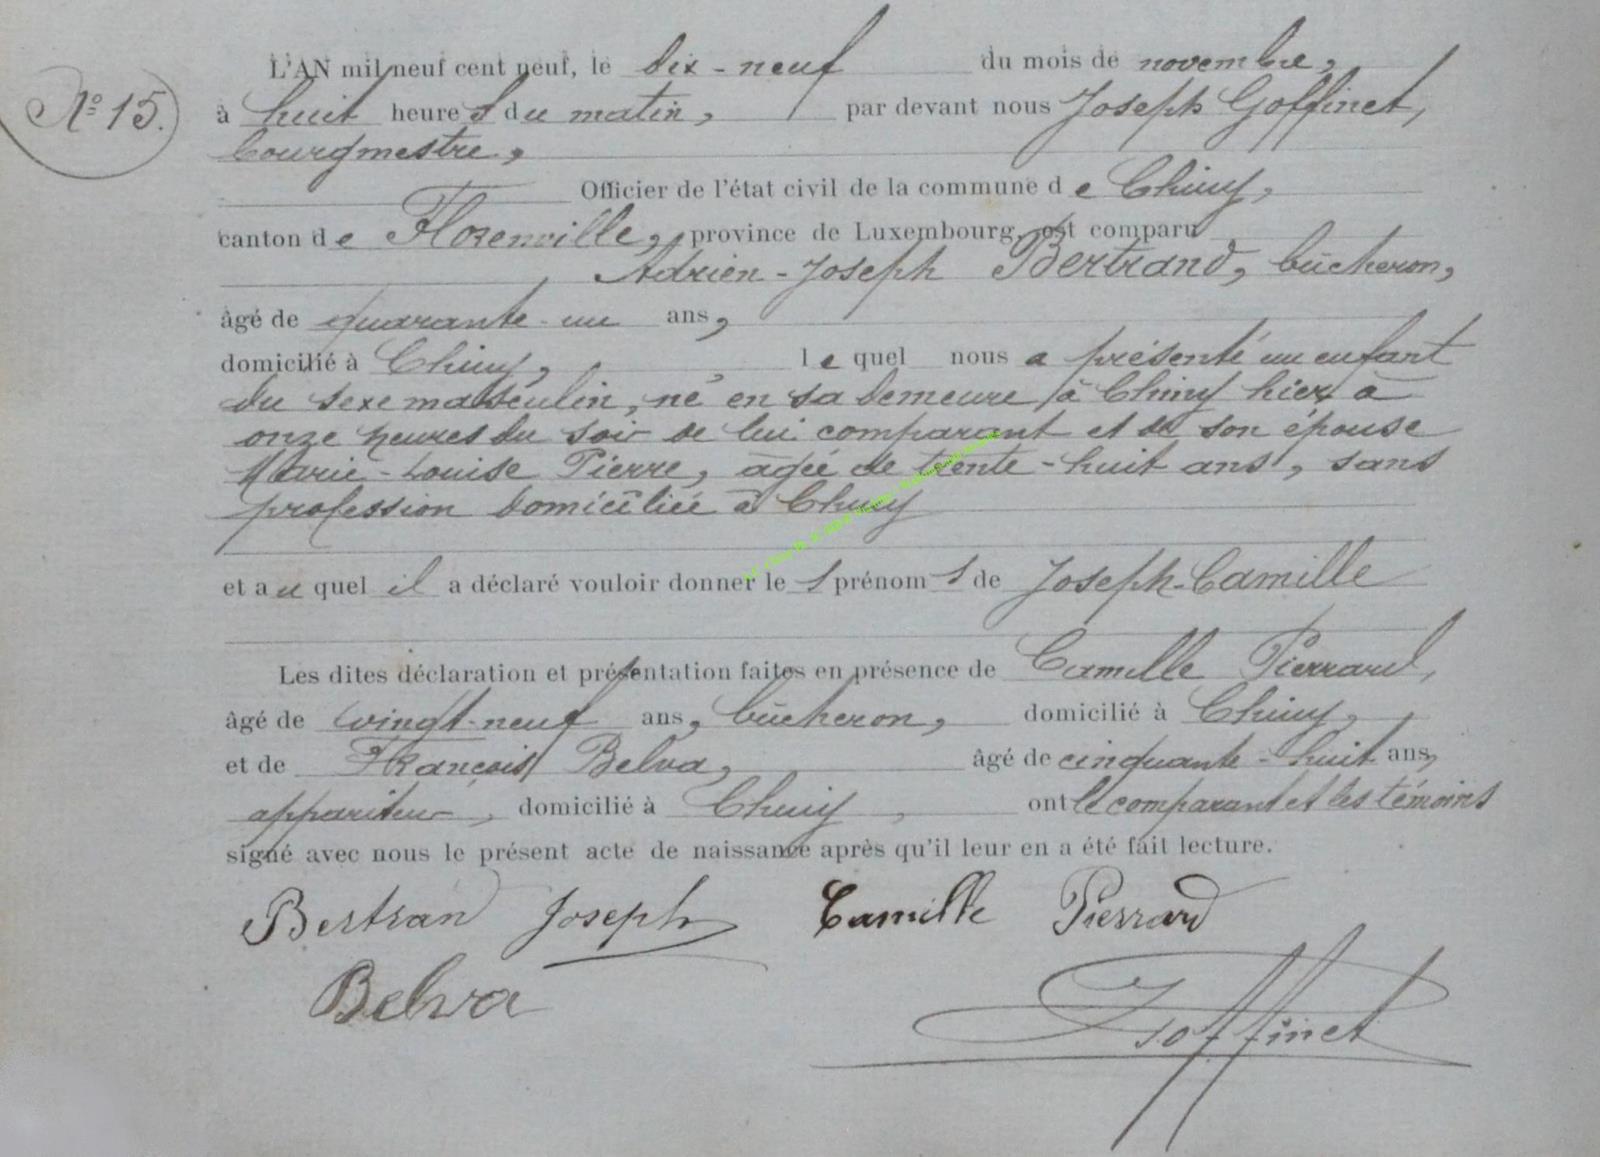 L'AN mil neuf cent neuf, le dix-neuf du mois de novembre,
N° 15.
à huit heures du matin, par devant nous Joseph Goffinet,
bourgmestre,
Officier de l'état civil de la commune de Chiny,
canton de Florenville, province de Luxembourg, est comparu
Adrien-Joseph Bertrand, bûcheron,
âgé de quarante-un ans,
domicilié à Chiny, lequel nous a présenté un enfant
du sexe masculin, né en sa demeure à Chiny hier à
onze heures du soir de lui comparant et de son épouse
Marie-Louise Pierre, âgée de trente-huit ans, sans
profession domiciliée à Chiny
et auquel il a déclaré vouloir donner les prénoms de Joseph-Camille
Les dites déclaration et présentation faites en présence de Camille Pierrard,
âgé de vingt-neuf ans, bûcheron, domicilié à Chiny,
et de François Belva, âgé de cinquante-huit ans,
appariteur, domicilié à Chiny, ont le comparant et les témoins
signé avec nous le présent acte de naissance après qu'il leur en a été fait lecture.
Bertrand Joseph Camille Pierrard
Belva
Goffinet